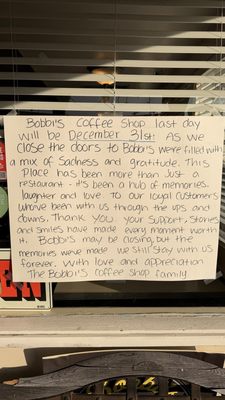 Bobbi's Coffee Shop last day
will be December 31st! As we
close the doors to Bobbi's were filled with
a mix of Sadness and gratitude. This
Place has been more than Just a
restaurant - it's been a hub of memories,
laughter and love. To our loyal customers
who've been with us through the ups and
downs, Thank you. Your support, stories
and smiles have made every moment worth
it. Bobbi's may be closing, but the
memories we've made we still stay with us
forever. With love and appreciation
The Bobbi's Coffee Shop family
EN